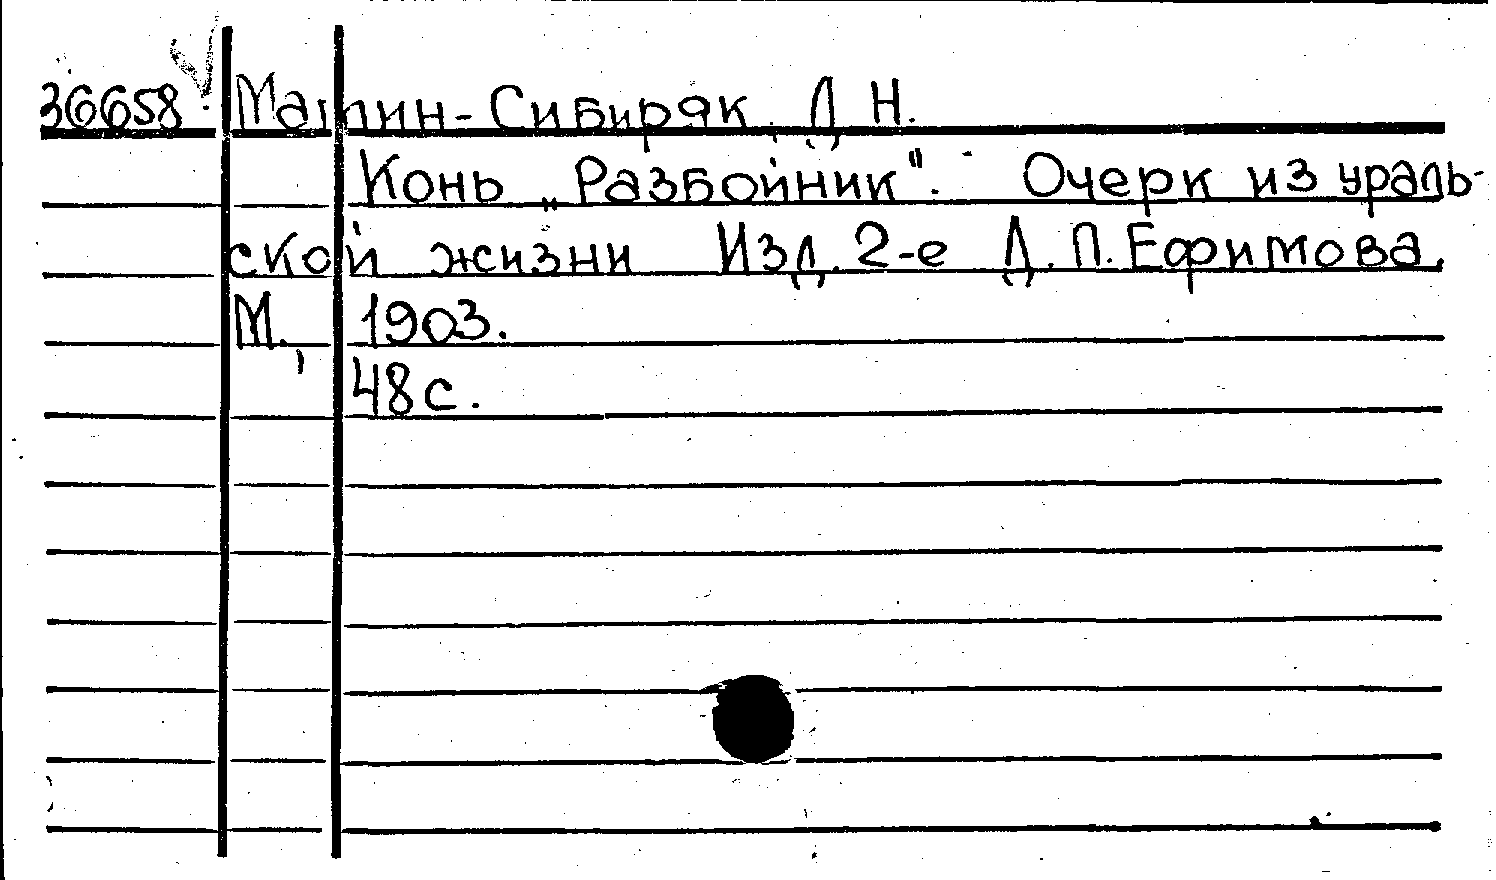 36658 Мамин-Сибиряк, Д. Н.
Конь „Разбойник". Очерк из ураль-
ской жизни Изд. 2-е Д. П. Ефимова.
М., 1903.
48 с.